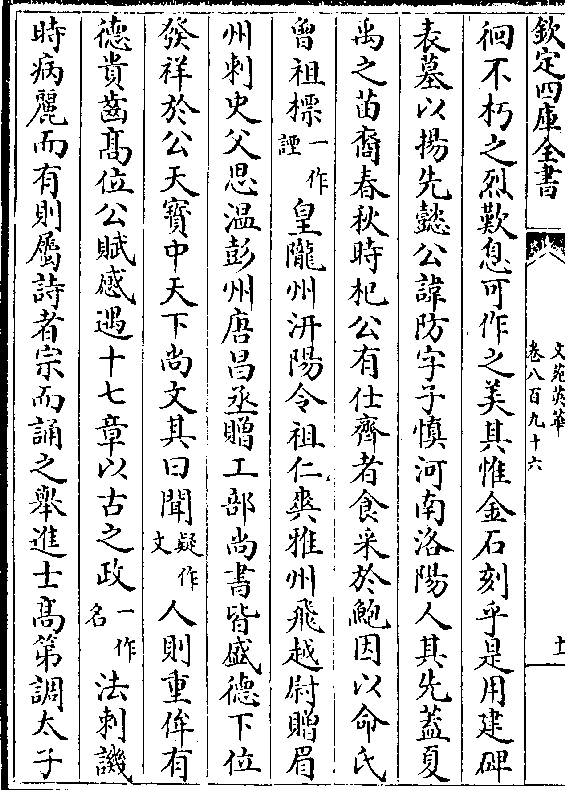 欽定四庫全書
文苑英華
卷八百九十六
十
徊不朽之烈歎息可作之美其惟金石刻乎是用建碑
表墓以揚先懿公諱防字子慎河南洛陽人其先蓋夏
禹之苗裔春秋時杞公有仕齊者食采於鮑因以命氏
曾祖標一作諲皇隴州汧陽令祖仁爽雅州飛越尉贈眉
州刺史父思温彭州唐昌丞贈工部尚書皆盛德下位
發祥於公天寶中天下尚文其曰聞疑作文人則重侔有
德貴齒髙位公賦感遇十七章以古之政一作名法刺譏
時病麗而有則屬詩者宗而誦之舉進士髙第調太子